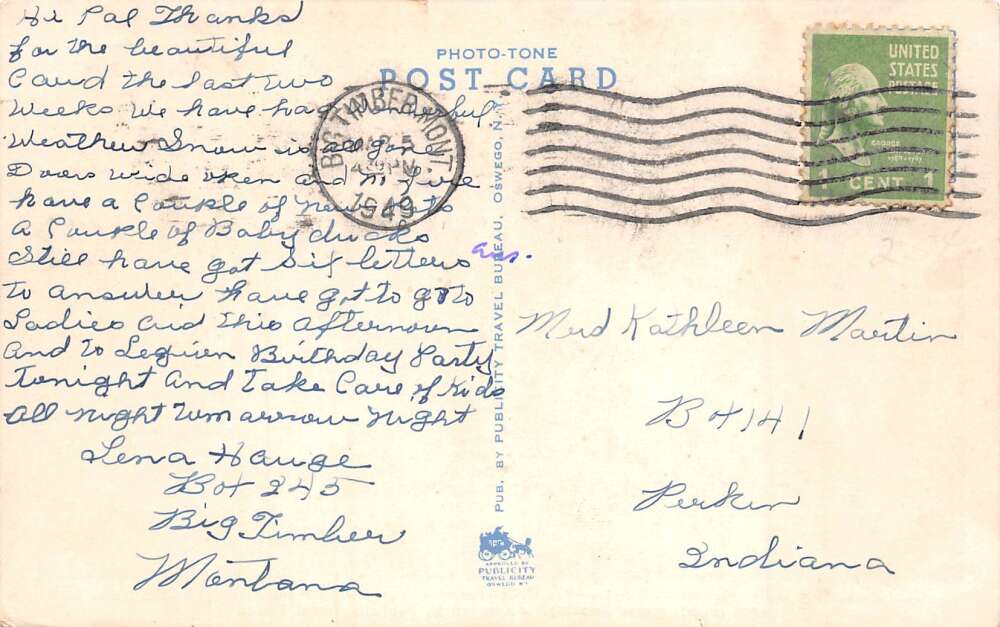 Hi Pal Thanks
for the beautiful
Card the last two
Weeks We have had
Weather Snow is all gone
Doors wide open and
have a Couple of
a Couple of Baby ducks
Still have got six letters
To answer have got to go to
Ladies Aid this afternoon
And to Legion Birthday Party
tonight And Take Care of Kids
All night Tomarrow Night
Lena Hauge
Box 245
Big Timber
Montana
PHOTO-TONE
POST CARD
BIG TIMBER, MONT.
1949
PUB. BY PUBLICITY TRAVEL BUREAU, OSWEGO, N.Y.
ans.
APPROVED BY
PUBLICITY
TRAVEL BUREAU
OSWEGO NY
UNITED
STATES
POSTAGE
GEORGE
WASHINGTON
1789-1797
1 CENT 1
Mrs Kathleen Martin
Box 141
Perkin
Indiana
2